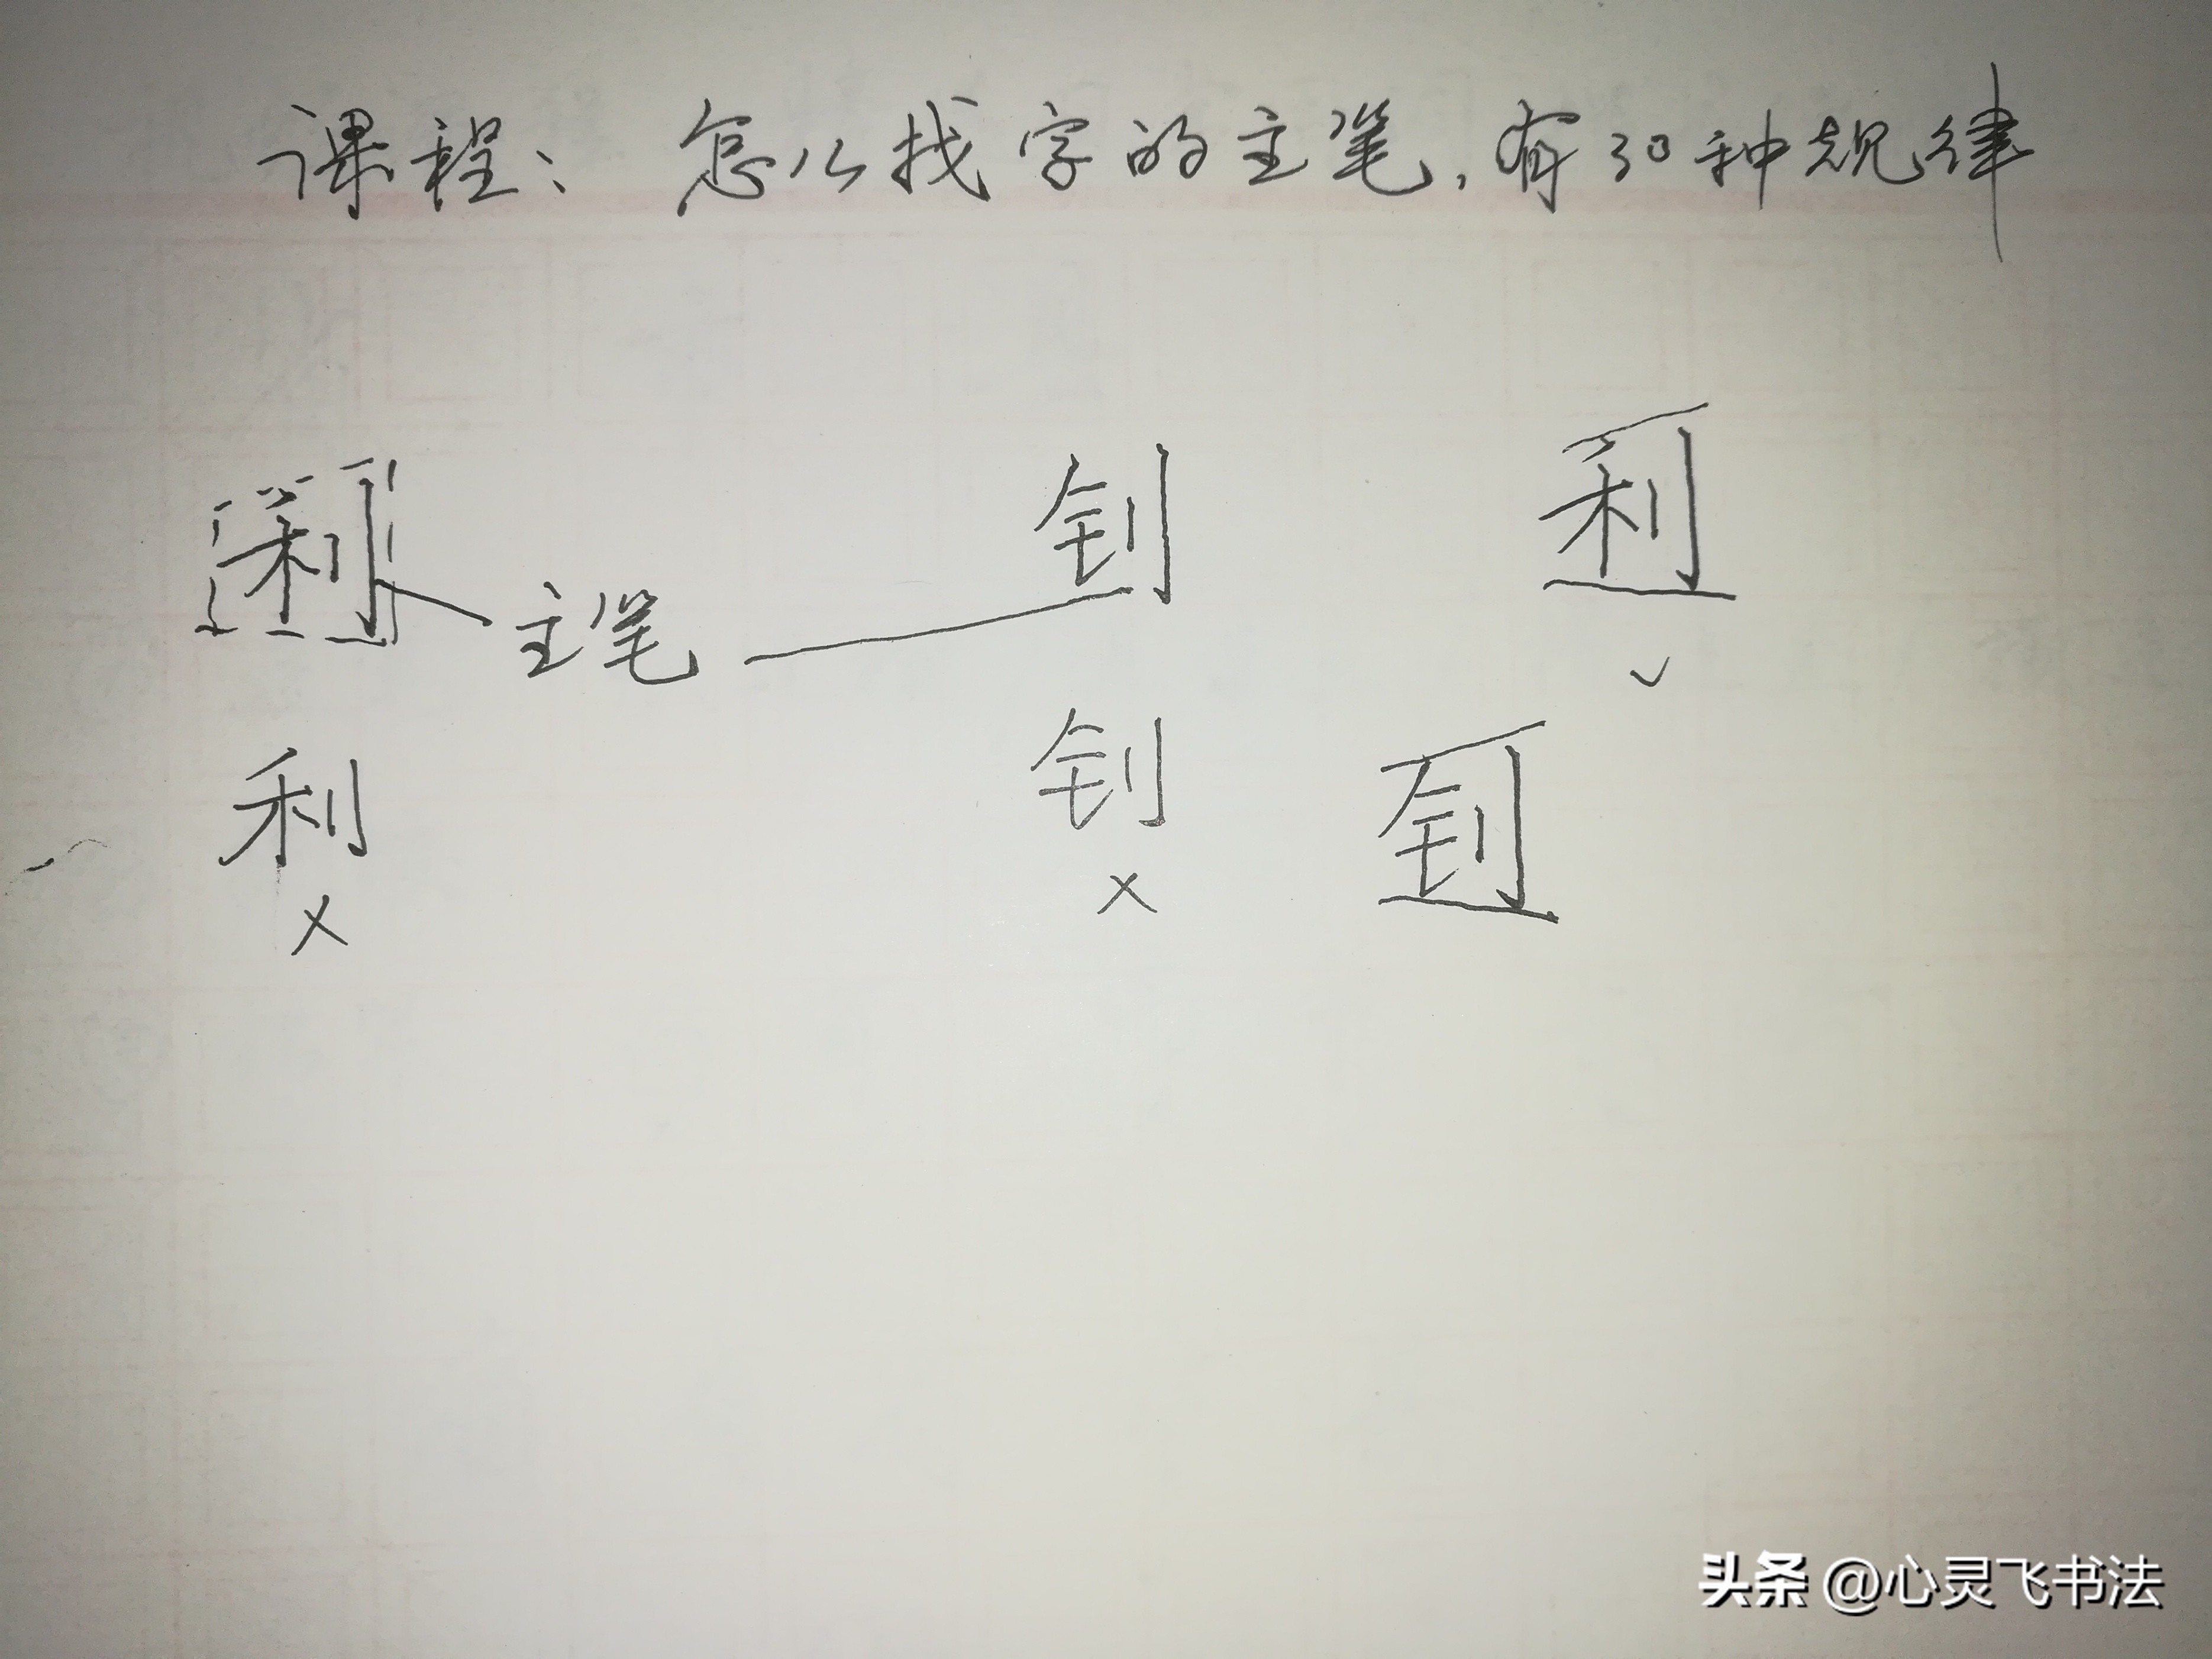 课程：怎么找字的主笔，有30种规律
利 钊 利
主笔
✓
利 钊 钊
× ×
头条 @心灵飞书法